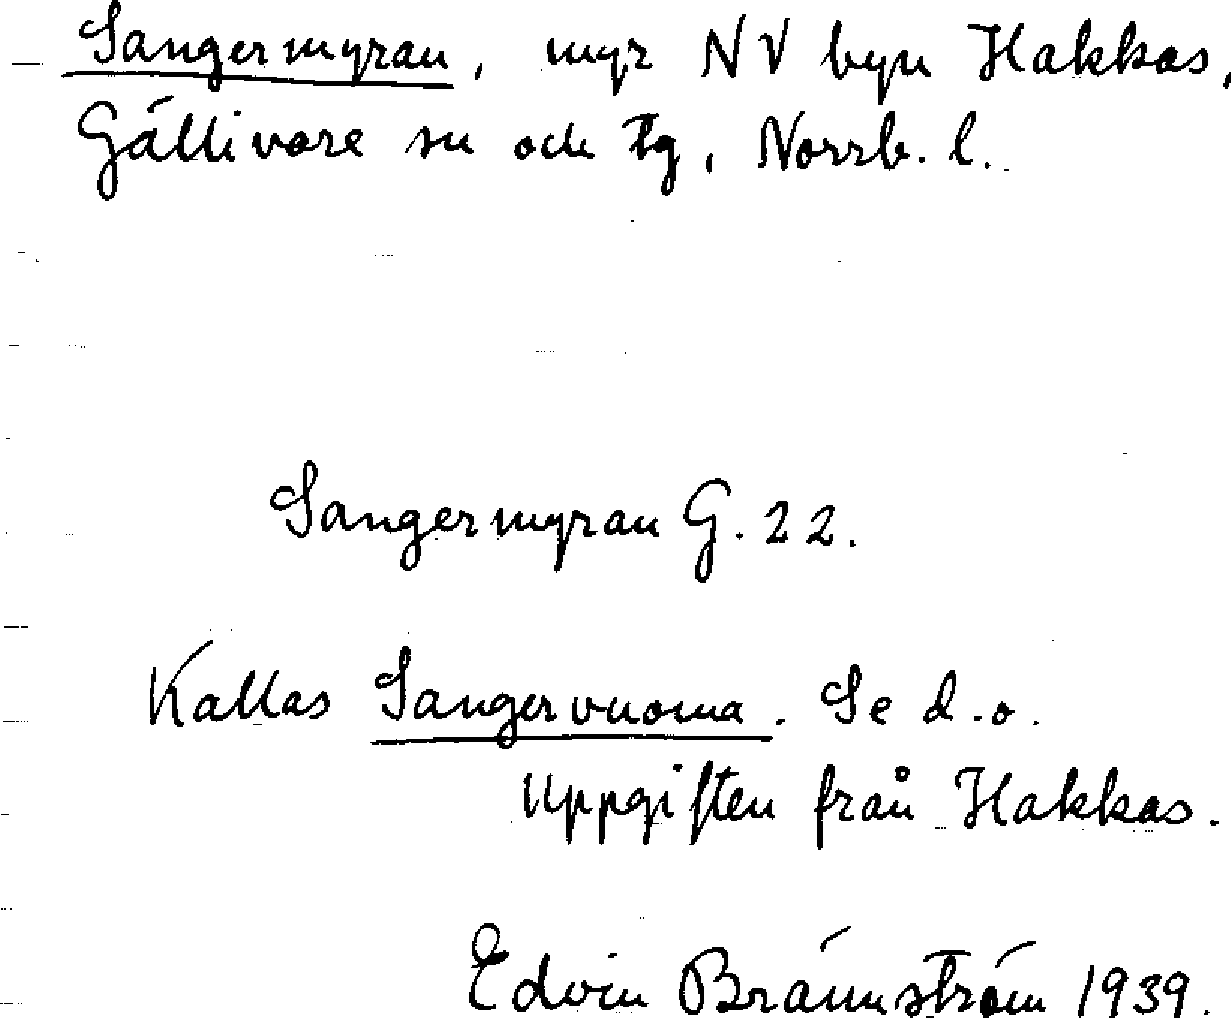 Sangermyran, myr NV byn Hakkas,
Gällivare sn och tg, Norrb. l.
Sangermyran G. 22.
Kallas Sangervuoma. Se d.o.
Uppgiften från Hakkas.
Edvin Brännström 1939.